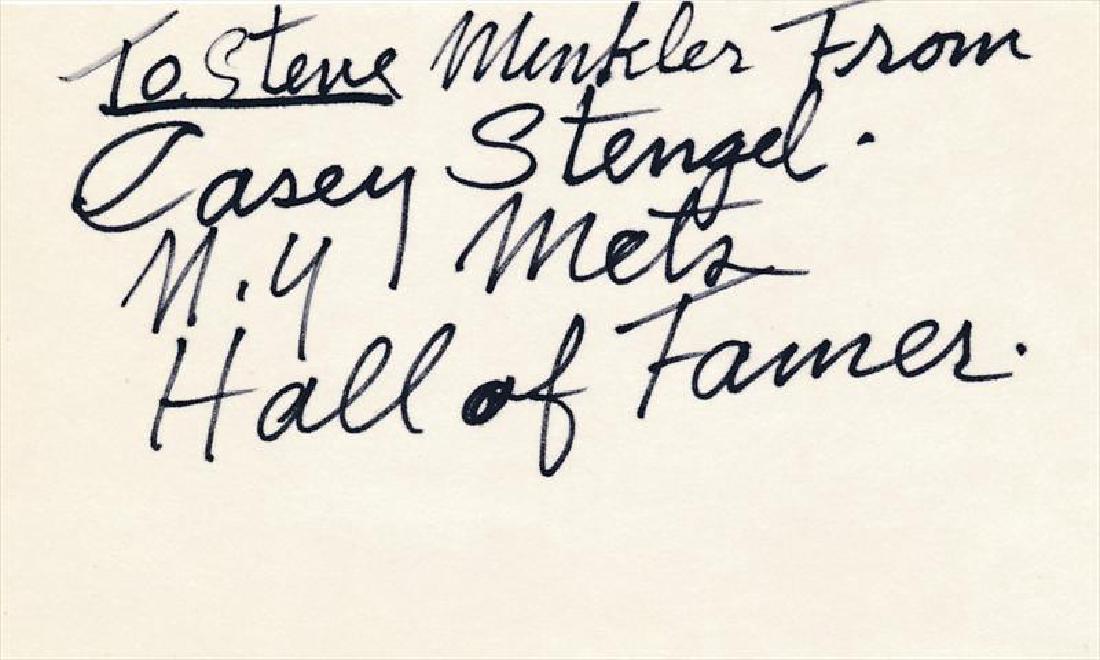 To. Steve Minkler From
Casey Stengel.
N.Y Mets
Hall of Famer.